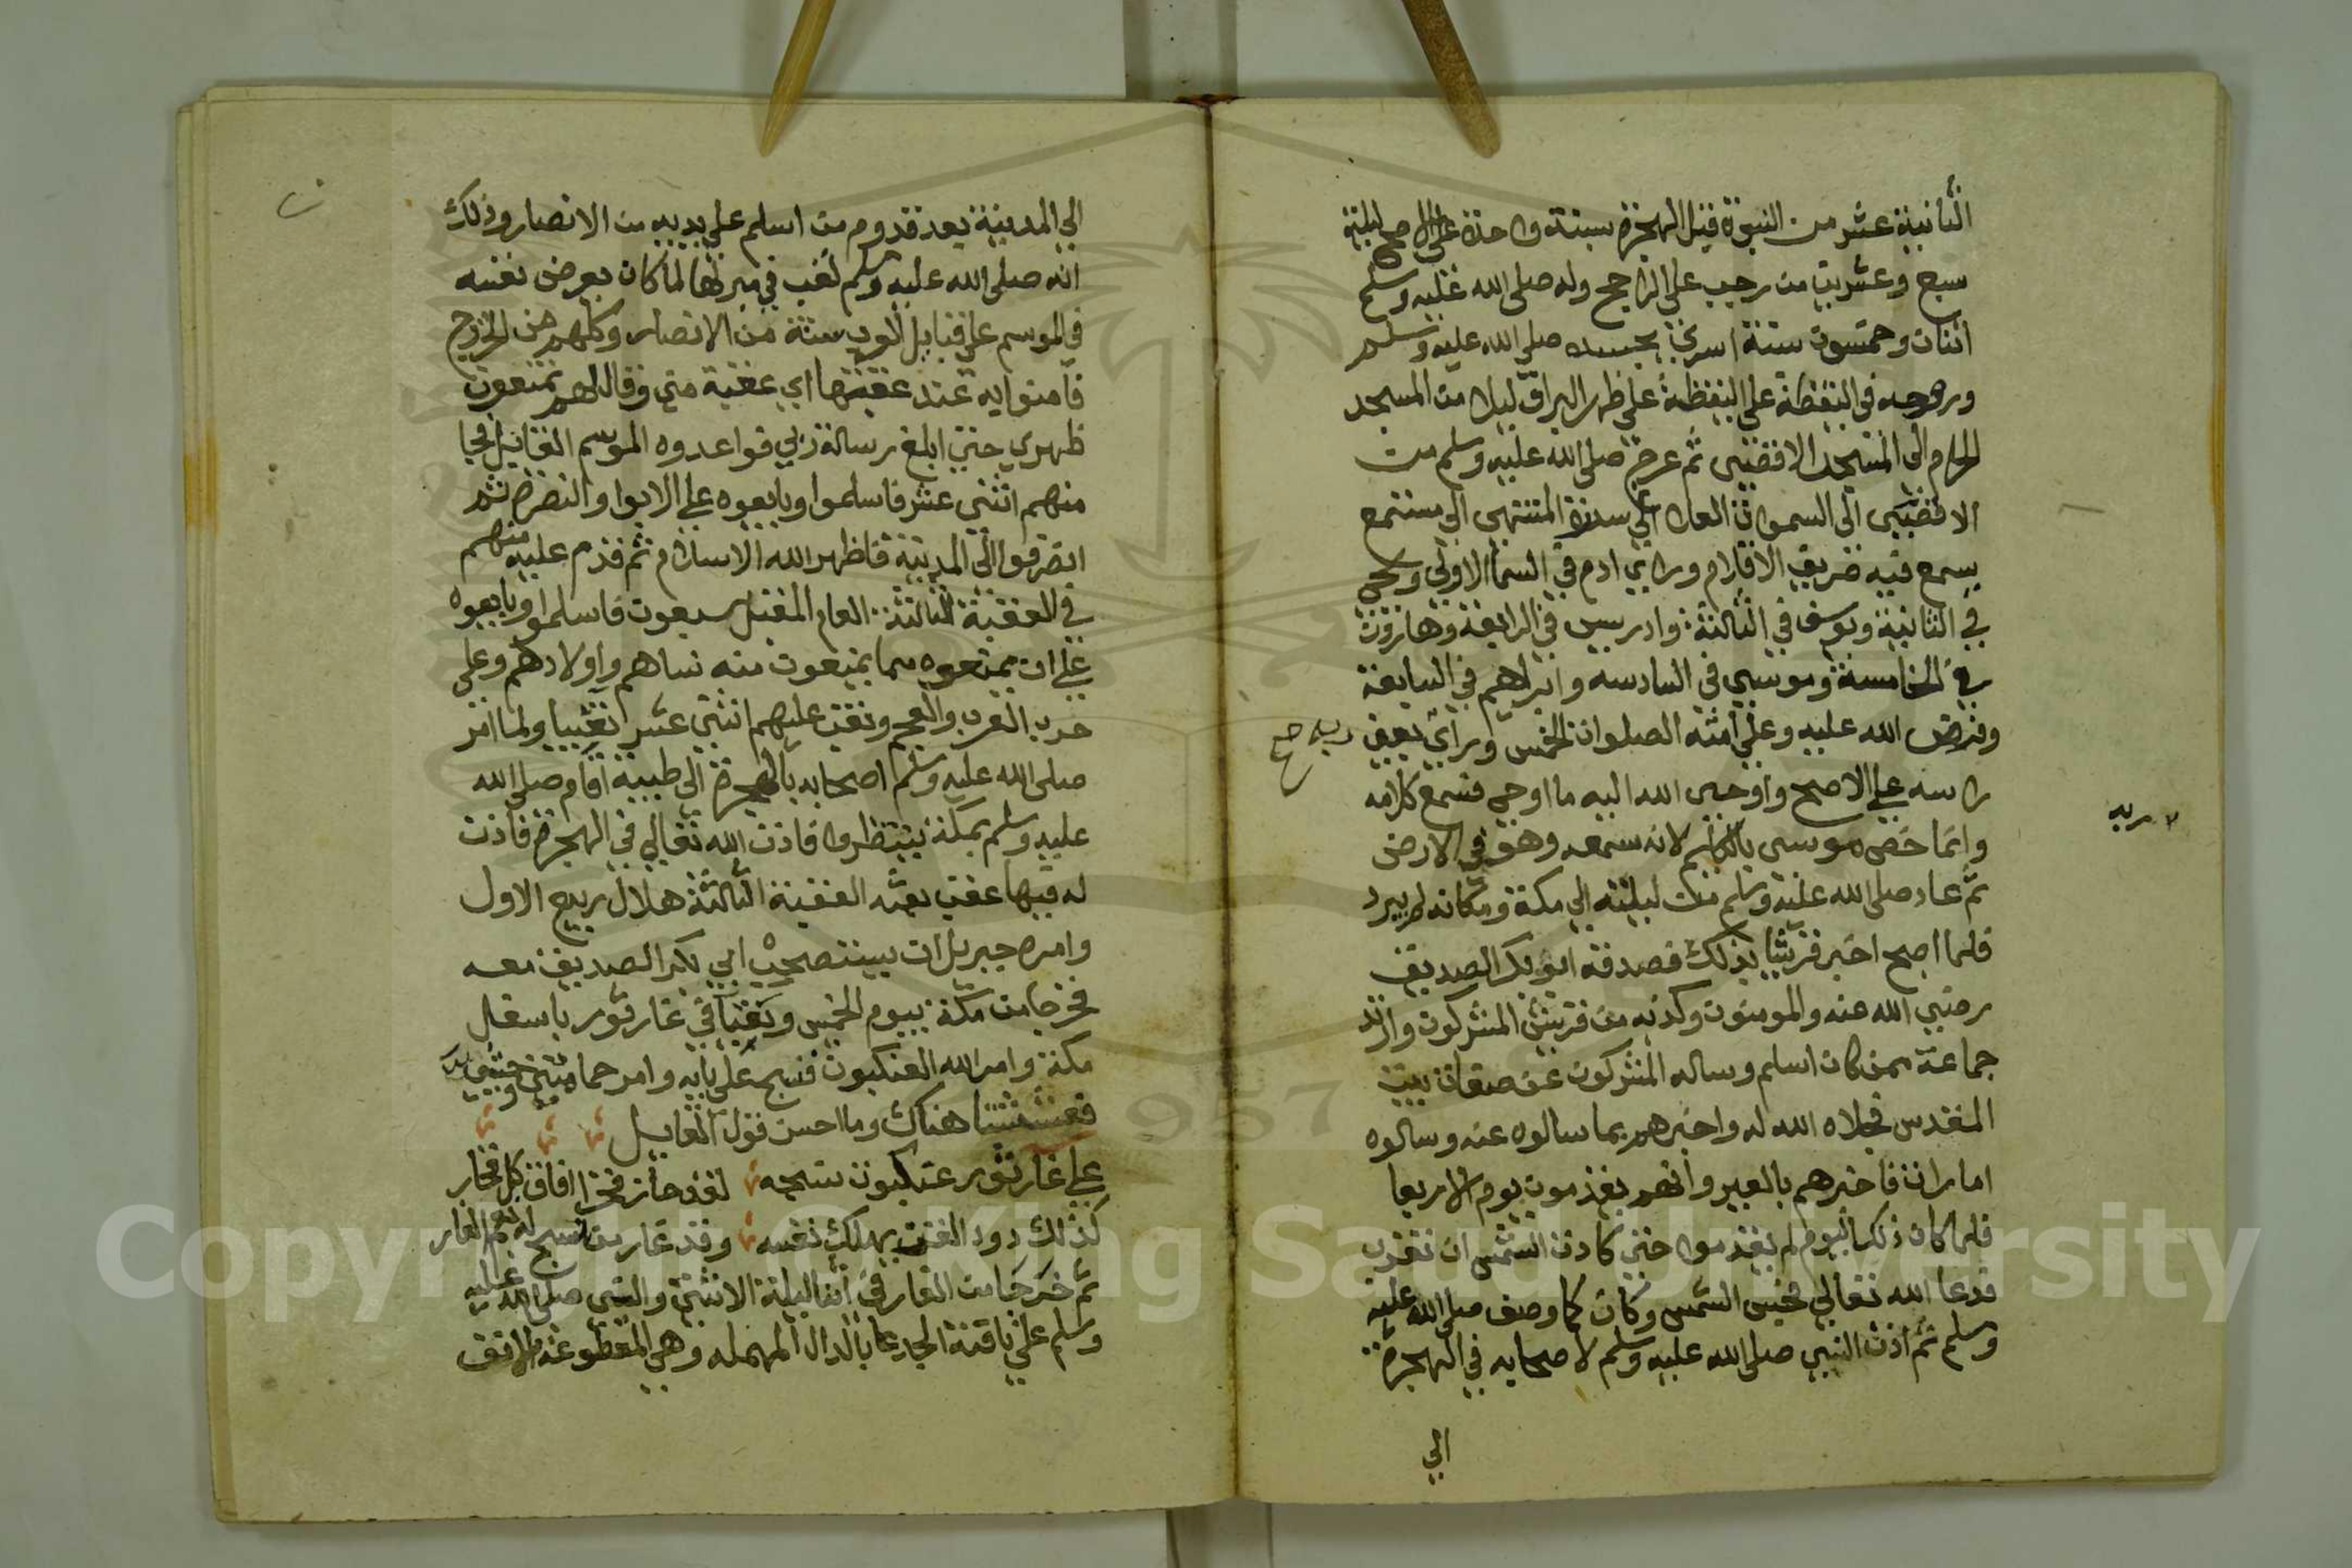 الثانية عشر من النبوة قبل الهجرة بسنة واحدة على الاصح ليلة
سبع وعشرين من رجب على الراجح وله صلى الله عليه وسلم
اثنان وخمسون سنة اسري بجسده صلى الله عليه وسلم
وروحه في اليقظة على اليقظة على ظهر البراق ليلا من المسجد
الحرام الى المسجد الاقصى ثم عرج صلى الله عليه وسلم من
الاقصى الى السموات العلا الى سدرة المنتهى الى مستمع
يسمع فيه صريف الاقلام وراي ادم في السما الاولى ويحيى
في الثانية ويوسف في الثالثة وادريس في الرابعة وهارون
في الخامسة وموسى في السادسه وابراهيم في السابعة
وفرض الله عليه وعلى امته الصلوات الخمس وراي بعين ربه صح
راسه على الاصح واوحى الله اليه ما اوحى فسمع كلامه
ربه
وانما خص موسى بالكليم لانه سمعه وهو في الارض
ثم عاد صلى الله عليه وسلم من ليلته الى مكة ومكانه لم يبرد
فلما اصبح اخبر قريشا بذلك فصدقه ابو بكر الصديق
رضي الله عنه والمومنون وكذبه من قريش المشركون وارتد
جماعة ممن كان اسلم وساله المشركون عن صفات بيت
المقدس فجلاه الله له واخبرهم بما سالوه عنه وسالوه
امارات فاخبرهم بالعير وانهم يقدمون يوم الاربعا
فلما كان ذلك اليوم لم يقدموا حتى كادت الشمس ان تغرب
فدعا الله تعالى فحبس الشمس وكان كما وصف صلى الله عليه
وسلم ثم اذن النبي صلى الله عليه وسلم لاصحابه في الهجرة
الى
الى المدينة بعد قدوم من اسلم على يديه من الانصار وذلك
انه صلى الله عليه وسلم لقب في ميرلها لما كان يعرض نفسه
في الموسم على قبايل العرب ستة من الانصار وكلهم من الخزرج
فآمنوا به عند عقبتها اي عقبة منى وقال لهم تمنعون
ظهري حتى ابلغ رسالة ربي فواعدوه الموسم القابل فجا
منهم اثنى عشر فاسلموا وبايعوه على الايوا والنصرة ثم
انصرفوا الى المدينة فاظهر الله الاسلام ثم قدم عليه منهم
في العقبة الثالثة العام المقبل سبعون فاسلموا وبايعوه
على ان يمنعوه مما يمنعون منه نساهم واولادهم وعلى
حرب العرب والعجم ونقب عليهم اثنى عشر نقيبا ولما امر
صلى الله عليه وسلم اصحابه بالهجرة الى طيبة اقام صلى الله
عليه وسلم بمكة ينتظروا فاذن الله تعالى في الهجرة فاذن
له فيها عقب بعثه العقبة الثالثة هلال ربيع الاول
وامره جبريل ان يستصحب ابي بكر الصديق معه
فخرجا من مكة بيوم الخميس وبقيا في غار ثور باسفل
مكة وامر الله العنكبوت فنسج على بابه وامر حمامتين وحشيتين
فعششتا هناك وما احسن قول القايل
على غار ثور عنكبوت نسجه لقد حاز فخرا فاق كل فخار
كذلك دود القز يهلك نفسه وقد غار من نسج له فم الغار
ثم خرجا من الغار في اثنا ليلة الاثنين والنبي صلى الله عليه
وسلم على ناقته الجدعا بالدال المهمله وهي المقطوعة الانف
Copyright © King Saud University
1957